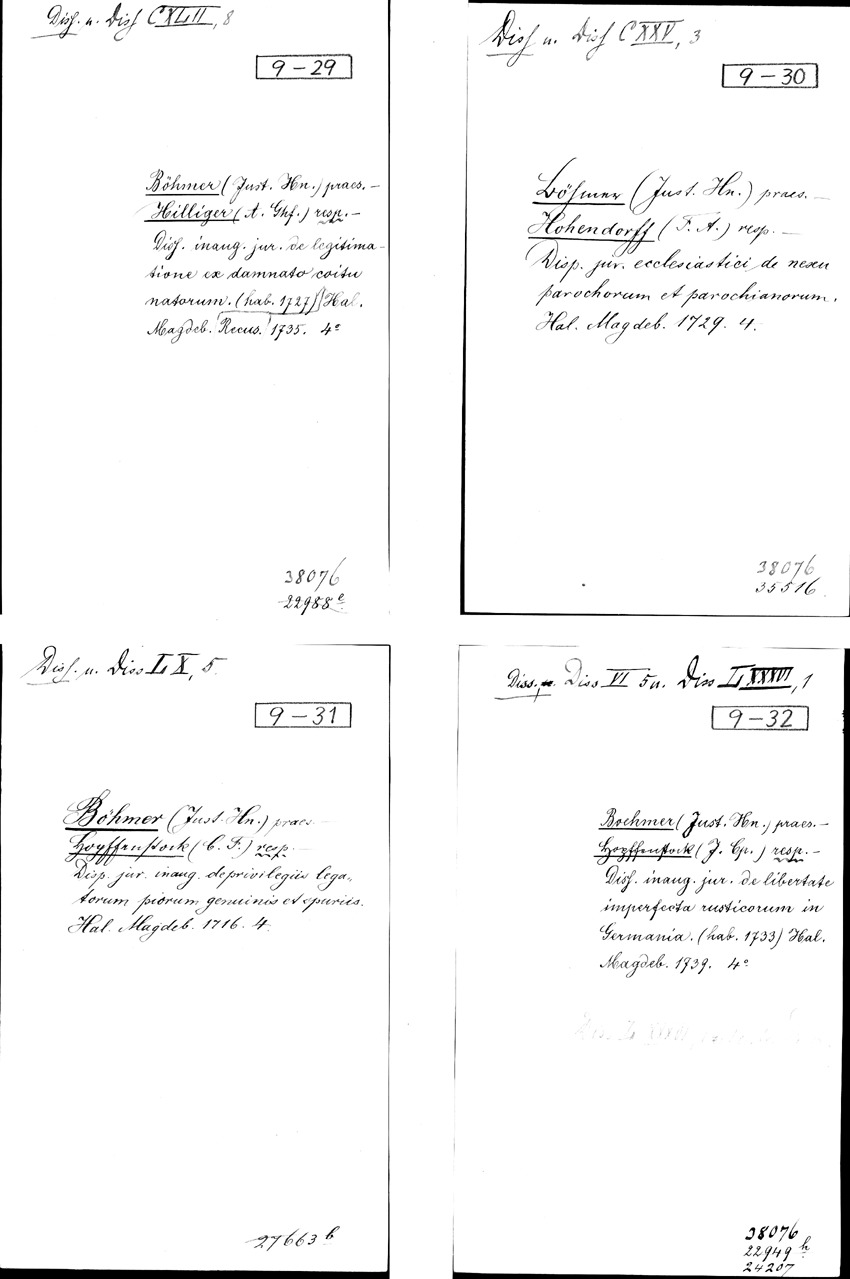 Diss. u. Diss CXLII, 8
9-29
Böhmer (Just. Hn.) praes. –
Hilliger (A. Ghf.) resp. –
Diss. inaug. jur. de legitima-
tione ex damnato coitu
natorum. (hab. 1727) Hal.
Magdeb. Recus. 1735. 4°
38076
22988 e
Diss u. Diss CXXV, 3
9-30
Böhmer (Just. Hn.) praes. –
Hohendorff (F. A.) resp. –
Disp. jur. ecclesiastici de nexu
parochorum et parochianorum.
Hal. Magdeb. 1729. 4.
38076
35516
Diss. u. Diss LX, 5
9-31
Böhmer (Just. Hn.) praes –
Hopffenstock (C. F.) resp. –
Disp. jur. inaug. de privilegiis lega-
torum piorum genuinis et spuriis.
Hal. Magdeb. 1716. 4.
27663 b
Diss. u. Diss VI 5 u. Diss LXXXVI, 1
9-32
Boehmer (Just. Hn.) praes. –
Hopffenstock (J. Cp.) resp. –
Diss. inaug. jur. de libertate
imperfecta rusticorum in
Germania. (hab. 1733) Hal.
Magdeb. 1739. 4°
38076
22949 h
24207